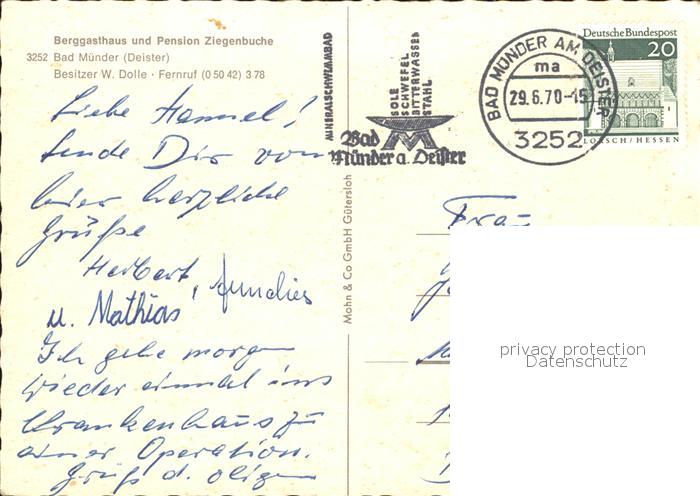 Berggasthaus und Pension Ziegenbuche
3252 Bad Münder (Deister)
Besitzer W. Dolle · Fernruf (0 50 42) 3 78
Liebe Hannel!
Sende Dir von
hier herzliche
Grüße
Herbert, Annelies
u. Mathias
Ich gehe morgen
wieder einmal ins
Krankenhaus zu
einer Operation.
Gruß d. obigen
Mohn & Co GmbH Gütersloh
MINERALSCHWIMMBAD
SOLE
SCHWEFEL
BITTERWASSER
STAHL
Bad
Münder a. Deister
BAD MÜNDER AM DEISTER
ma
29.6.70-15
3252
Deutsche Bundespost
20
LORSCH/HESSEN
Frau
privacy protection
Datenschutz